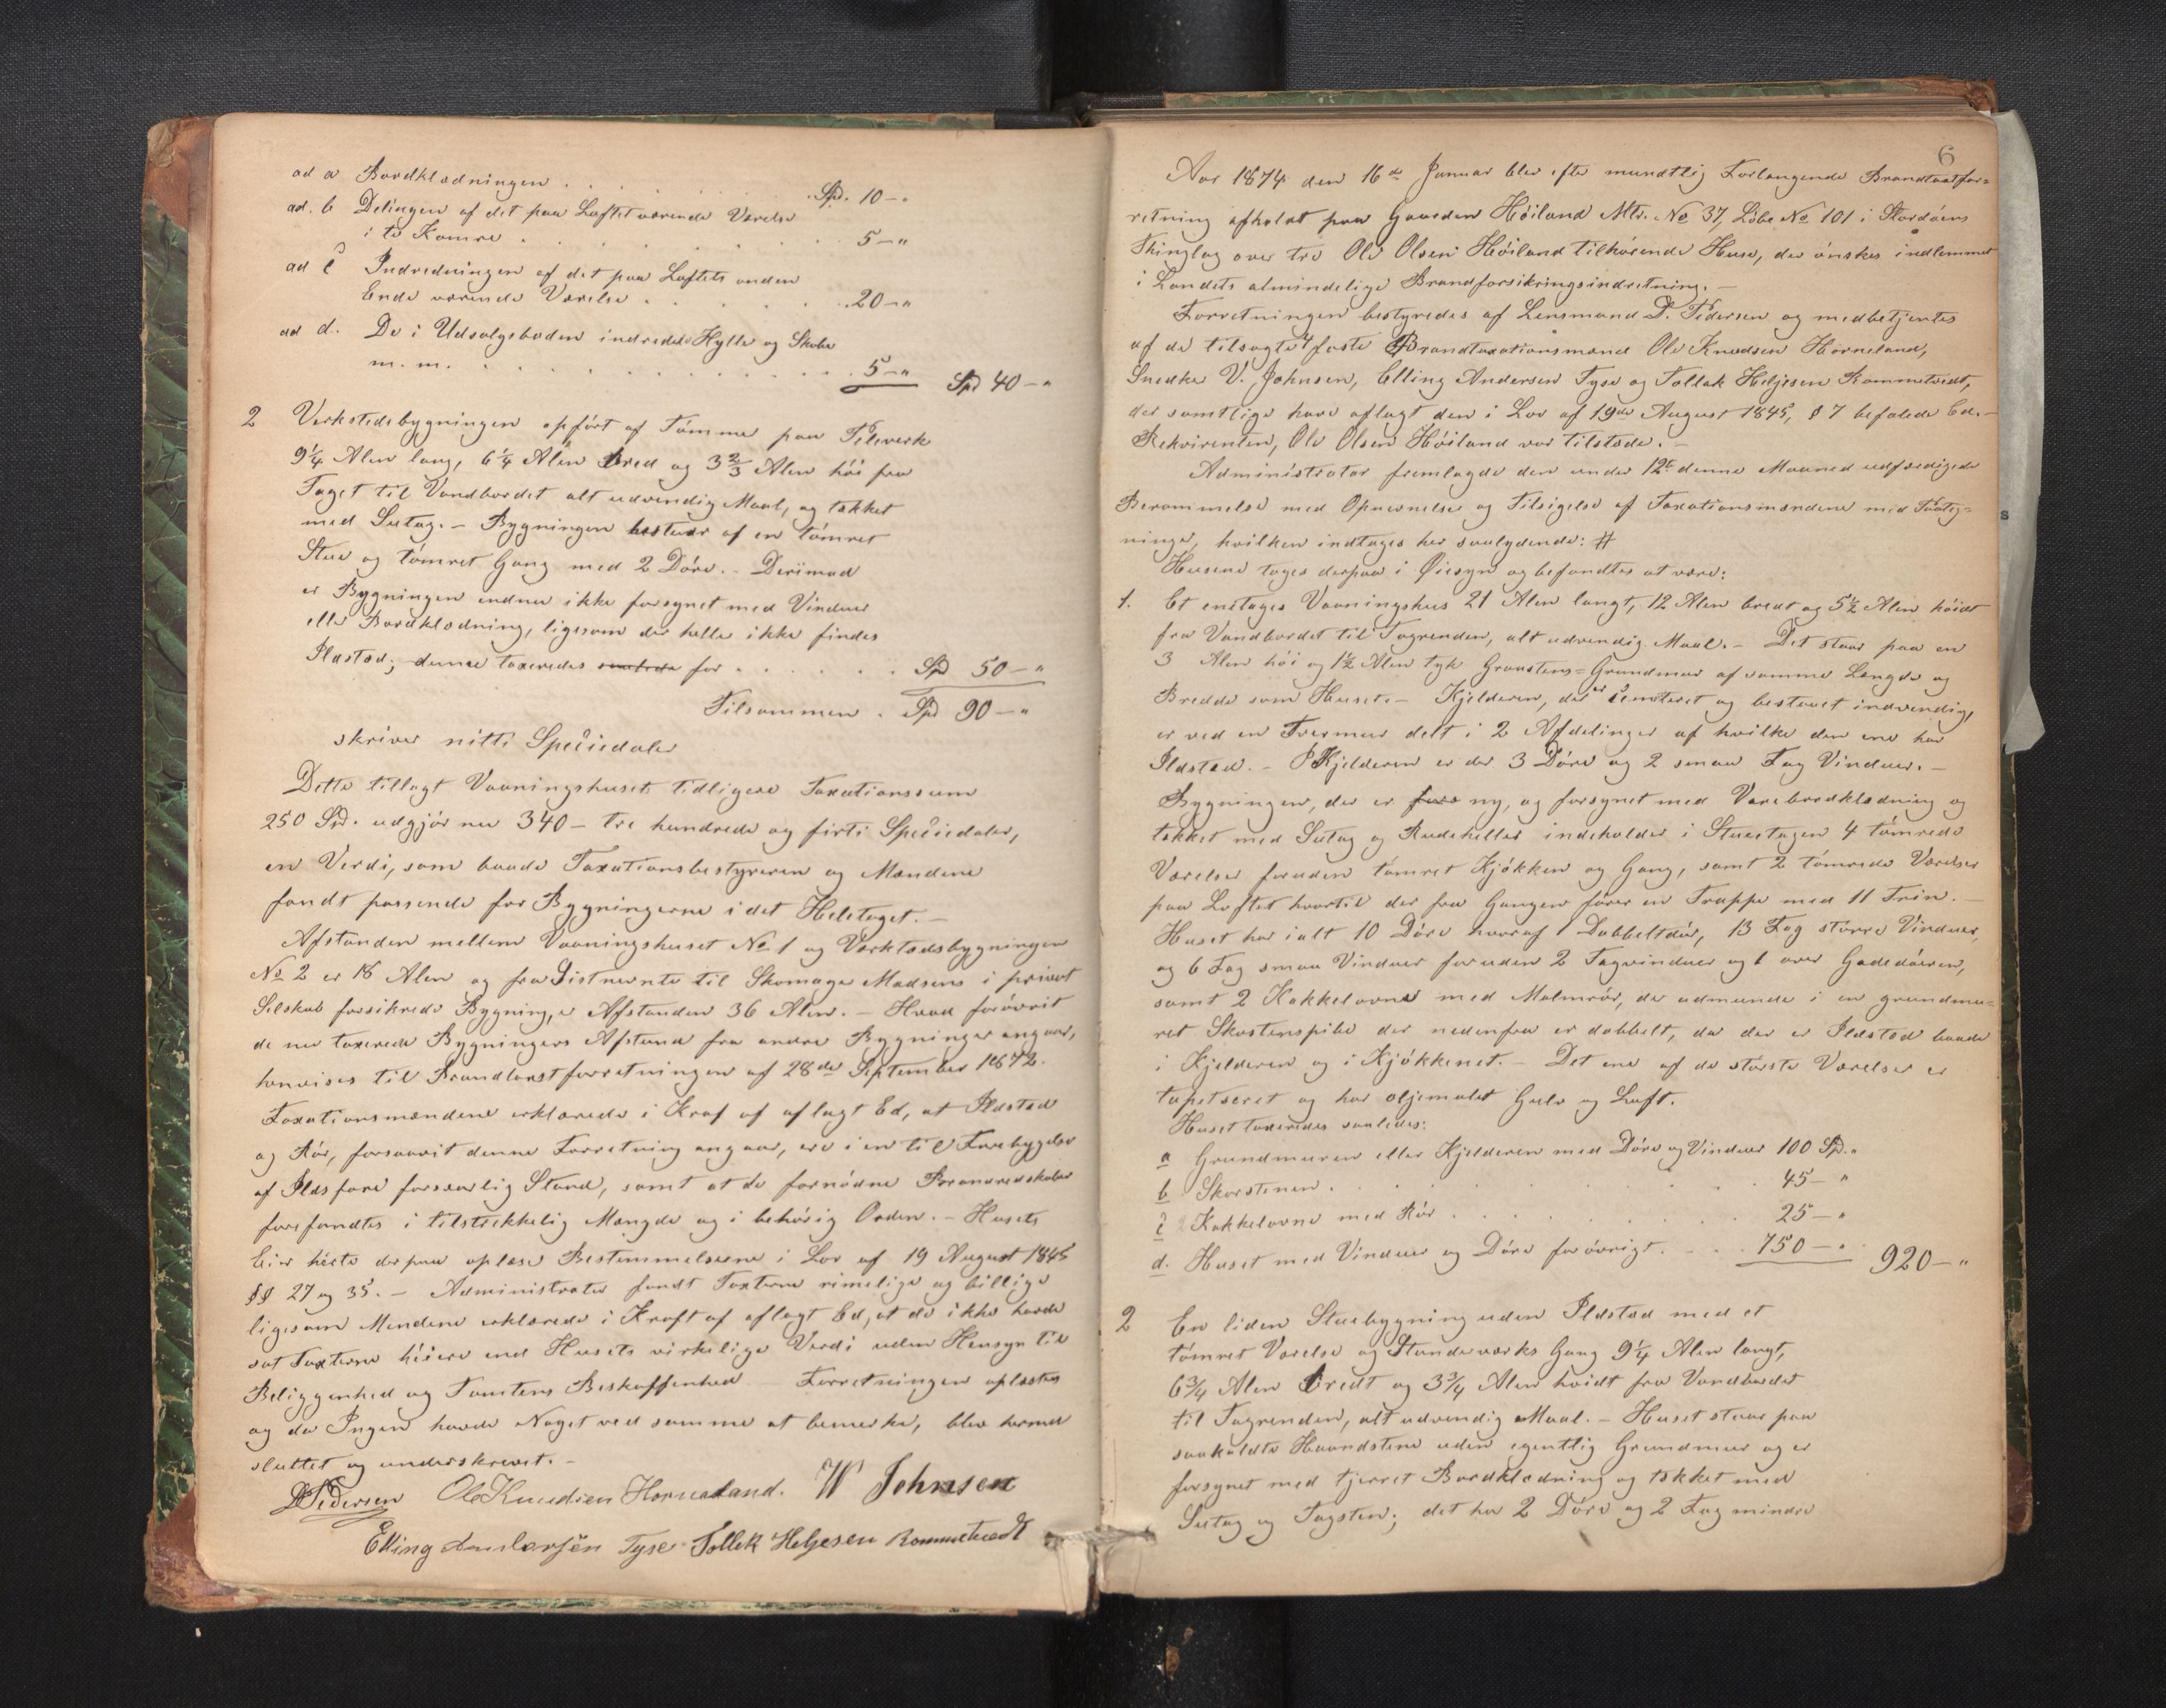 ad a Bordklædningen . . . Spd. 10 — "
ad. b Delingen af det paa Loftet værende Værelse
i to Kamre . . . 5 — "
ad c Indredningen af det paa Loftets anden
Ende værende Værelse . . . 20 — "
ad d. De i Udsalgsboden indredede Hylle og Skabe
m. m. . . . 5 — " Spd 40 — "
2 Verkstedsbygningen opført af Tømmer paa Pileverk
9¼ Alen lang, 6¼ Alen bred og 3⅔ Alen høi fra
Taget til Vandbordet alt udvendig Maal, og tækket
med Sutag. – Bygningen bestaar af en tømret
Stue og tømret Gang med 2 Døre. – Derimod
er Bygningen endnu ikke forsynet med Vinduer
eller Bordklædning, ligesom der heller ikke findes
Ildsted; denne taxeredes saaledes for . . . Spd 50 — "
Tilsammen . Spd 90 — "
skriver nitti Speciedaler
Dette tillagt Vaaningshusets tidligere Taxationssum
250 Spd. udgjør nu 340 – tre hundrede og firti Speciedaler,
en Verdi, som baade Taxationsbestyreren og Mændene
fandt passende for Bygningerne i det Heletaget. –
Afstanden mellem Vaaningshuset No 1 og Værkstedsbygningen
No 2 er 18 Alen og fra Sistnevnte til Skomager Madsens i privat
Selskab forsikrede Bygning, er Afstanden 36 Alen. – Hvad forøvrit
de nu taxerede Bygningers Afstand fra andre Bygninger angaar,
henvises til Brandtaxtforretningen af 28de September 1872.
Taxationsmændene erklærede i Kraf af aflagt Ed, at Ildsted
og Rør, forsaavit denne Forretning angaar, ere i en til Forebyggelse
af Ildsfare forsvarlig Stand, samt at de fornødne Brandredskaber
forefandtes i tilstrekkelig Mængde og i behørig Orden. – Husets
Eier hørte derpaa oplæse Bestemmelserne i Lov af 19 August 1845
§§ 27 og 35. – Administrator fandt Taxterne rimelige og billige
ligesom Mændene erklærede i Kraft af aflagt Ed, at de ikke havde
sat Taxterne høiere end Husets virkelige Verdi uden Hensyn til
Beliggenhed og Tomtens Beskaffenhed – Forretningen oplæstes
og da Ingen havde Noget ved samme at bemerke, blev hermed
sluttet og underskrevet. –
D Pedersen Ole Knudsen Horneland. W Johnsen
Elling Andersen Tyse Tollek Heljesen Rommetvedt
6
Aar 1874 den 16de Januar blev efter mundtlig Forlangende Brandtaxtfor=
retning afholdt paa Gaarden Høiland Mtr. No 37, Løbe No 101 i Stordøens
Thinglag over tre Ole Olsen Høiland tilhørende Huse, der ønskes indlemmet
i Landets almindelige Brandforsikringsindretning. –
Forretningen bestyredes af Lensmand D. Pedersen og medbetjentes
af de tilsagte 4 faste Brandtaxationsmænd Ole Knudsen Horneland,
Snedker V. Johnsen, Elling Andersen Tyse og Tollak Heljesen Rommetvedt,
der samtlige have aflagt den i Lov af 19de August 1845, § 7 befalede Ed. –
Rekvirenten, Ole Olsen Høiland var tilstede. –
Administrator fremlagde den under 12te denne Maaned udfærdigede
Berammelse med Opnevnelse og Tilsigelse af Taxationsmændene med Paateg=
ninger, hvilken indtages her saalydende: #
Husene toges derpaa i Øiesyn og befandtes at være:
1. Et enetages Vaaningshus 21 Alen langt, 12 Alen bredt og 5½ Alen høidt
fra Vandbordet til Tagrenden, alt udvendig Maal. – Det staar paa en
3 Alen høi og 1½ Alen tyk Graastens=Grundmur af samme Længde og
Bredde som Huset. – Kjelderen, der er cementeret og bestaaet indvendig,
er ved en Tvermur delt i 2 Afdelinger af hvilke den ene har
Ildsted. – I Kjelderen er der 3 Døre og 2 smaa Fag Vinduer. –
Bygningen, der er fors ny, og forsynet med Varebordklædning og
tækket med Sutag og Rudeheller indeholder i Stueetagen 4 tømrede
Værelser foruden tømret Kjøkken og Gang, samt 2 tømrede Værelser
paa Loftet hvortil der fra Gangen fører en Trappe med 11 Trin. –
Huset har ialt 10 Døre hvoraf 1 Dobbeltdør, 13 Fag større Vinduer,
og 6 Fag smaa Vinduer foruden 2 Tagvinduer og 1 over Gadedøren,
samt 2 Kakkelovne med Malmrør, der udmunde i en grundmu=
ret Skorstenspibe der nedenfra er dobbelt, da der er Ildsted baade
i Kjelderen og i Kjøkkenet. – Det ene af de største Værelser er
tapetseret og har oljemalet Gulv og Loft.
Huset taxeredes saaledes:
a Grundmuren eller Kjelderen med Døre og Vinduer 100 Spd. "
b Skorstenen . . . 45 — "
c 2 Kakkelovne med Rør . . . 25 — "
d. Huset med Vinduer og Døre forøvrigt . . . 750 — " 920 — "
2 En liden Stuebygning uden Ildsted med et
tømret Værelse og Standeværks Gang 9¼ Alen langt,
6¾ Alen bredt og 3¾ Alen høidt fra Vandbordet
til Tagrenden, alt udvendig Maal. – Huset staar paa
saakaldte Haandstene uden egentlig Grundmur og er
forsynet med tjærret Bordklædning og tækket med
Sutag og Tagsten; det har 2 Døre og 2 Fag mindre